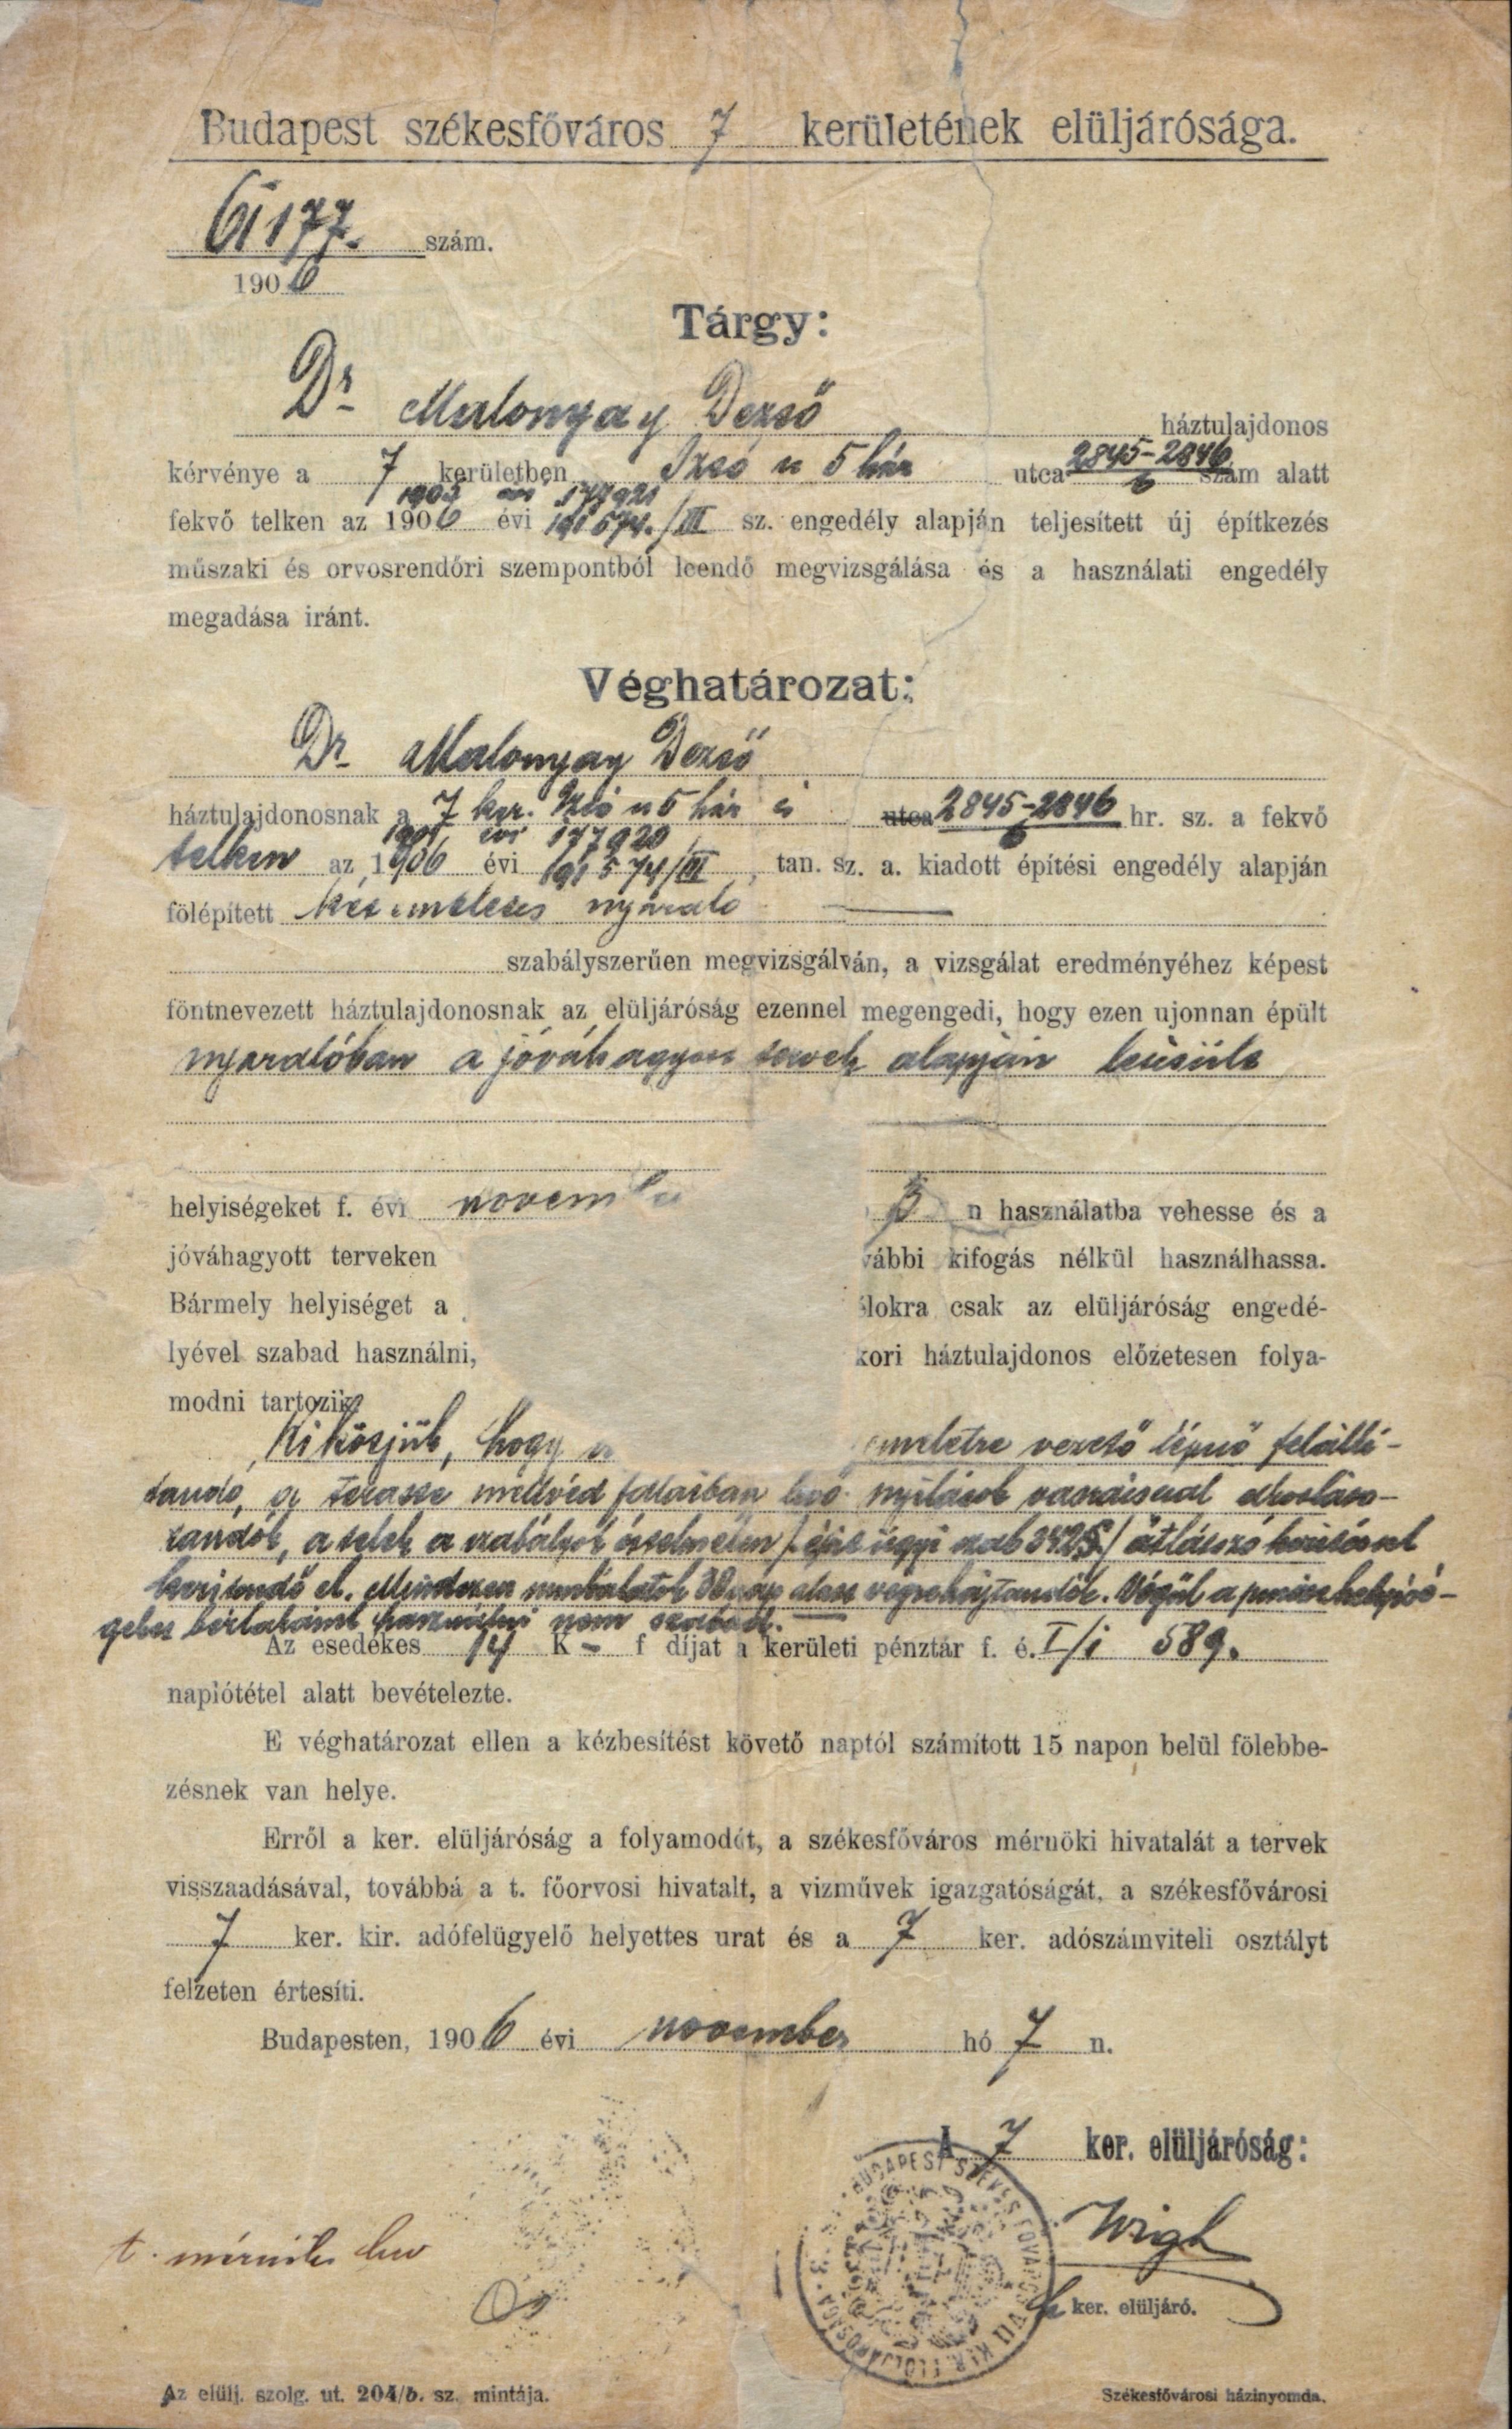 Budapest székesfőváros 7 kerületének elüljárósága.
61177. szám.
1906
Tárgy:
Dr Malonyay Dezső háztulajdonos
kérvénye a 7 kerületben Izsó u 5 ház utca 2845-2846/6 szám alatt
1905 évi 177921
fekvő telken az 1906 évi 191574./III sz. engedély alapján teljesített új építkezés
műszaki és orvosrendőri szempontból leendő megvizsgálása és a használati engedély
megadása iránt.
Véghatározat:
Dr Malonyay Dezső
háztulajdonosnak a 7 ker. Izsó u 5 ház utca 2845-2846/6 hr. sz. a fekvő
évi 177920
telken az 1906 évi 191574/III, tan. sz. a. kiadott építési engedély alapján
fölépített két emeletes nyaraló
szabályszerűen megvizsgálván, a vizsgálat eredményéhez képest
föntnevezett háztulajdonosnak az elüljáróság ezennel megengedi, hogy ezen ujonnan épült
nyaralóban a jóváhagyott tervek alapján készült
helyiségeket f. évi novem n használatba vehesse és a
jóváhagyott terveken vábbi kifogás nélkül használhassa.
Bármely helyiséget a lokra csak az elüljáróság engedé-
lyével szabad használni, kori háztulajdonos előzetesen folya-
modni tartozik.
Kikötjük, hogy a emeletre vezető lépcső felállí-
tandó, a terasse mellvéd falaiban levő nyílások vasráccsal elválasz-
tandók, a telek a szabályok értelmében /építésügyi szab 242§/ átlátszó kerítéssel
kerítendő el. Mindezen munkálatok 30 nap alatt végrehajtandók. Végül a pincehelyisé-
geket használni nem szabad.
Az esedékes 14 K - f díjat a kerületi pénztár f. é. I/i 589.
naplótétel alatt bevételezte.
E véghatározat ellen a kézbesítést követő naptól számított 15 napon belül fölebbe-
zésnek van helye.
Erről a ker. elüljáróság a folyamodót, a székesfőváros mérnöki hivatalát a tervek
visszaadásával, továbbá a t. főorvosi hivatalt, a vizművek igazgatóságát, a székesfővárosi
7 ker. kir. adófelügyelő helyettes urat és a 7 ker. adószámviteli osztályt
felzeten értesíti.
Budapesten, 1906 évi november hó 7 n.
A 7 ker. elüljáróság:
BUDAPEST SZÉKESFŐVÁROS VII KER. ELÖLJÁRÓSÁGA
ker. elüljáró.
t. mérnöki
Az elülj. szolg. ut. 204/b. sz. mintája.
Székesfővárosi házinyomda.